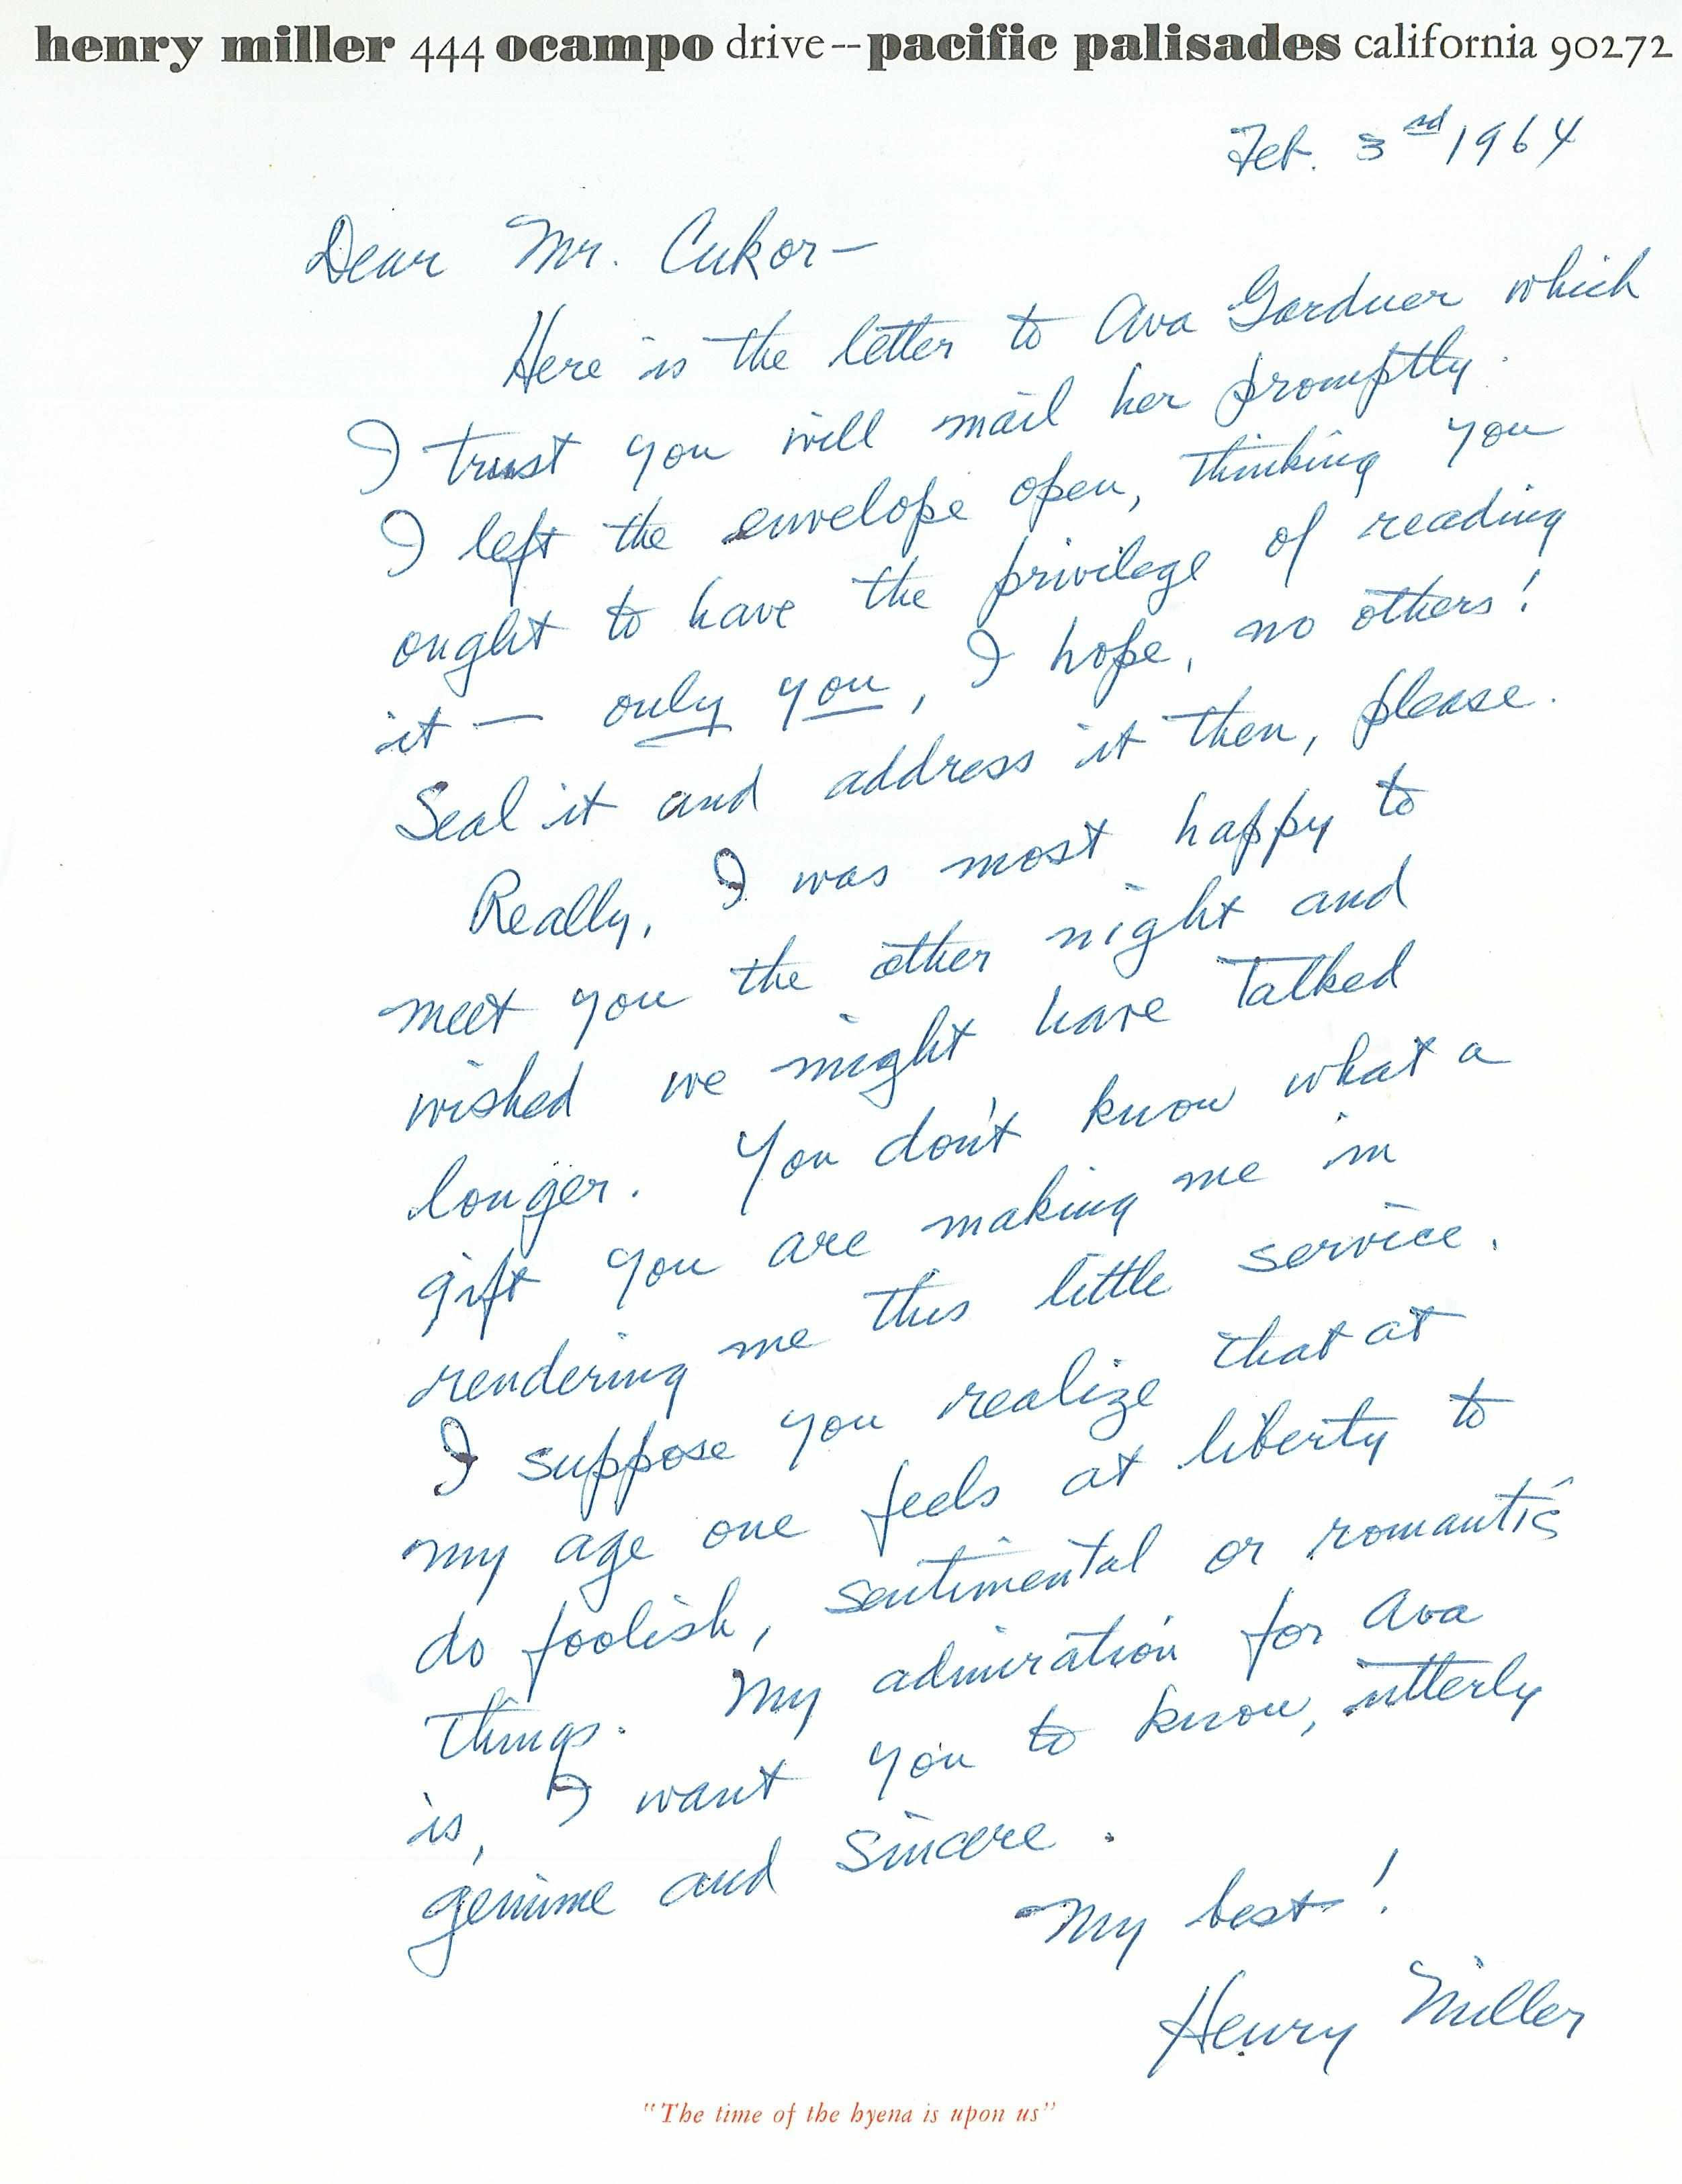 henry miller 444 ocampo drive--pacific palisades california 90272
Feb. 3rd 1964
Dear Mr. Cukor—
Here is the letter to Ava Gardner which
I trust you will mail her promptly.
I left the envelope open, thinking you
ought to have the privilege of reading
it — only you, I hope, no others!
Seal it and address it then, please.
Really, I was most happy to
meet you the other night and
wished we might have talked
longer. You don't know what a
gift you are making me in
rendering me this little service.
I suppose you realize that at
my age one feels at liberty to
do foolish, sentimental or romantic
things. My admiration for Ava
is, I want you to know, utterly
genuine and sincere.
My best!
Henry Miller
"The time of the hyena is upon us"